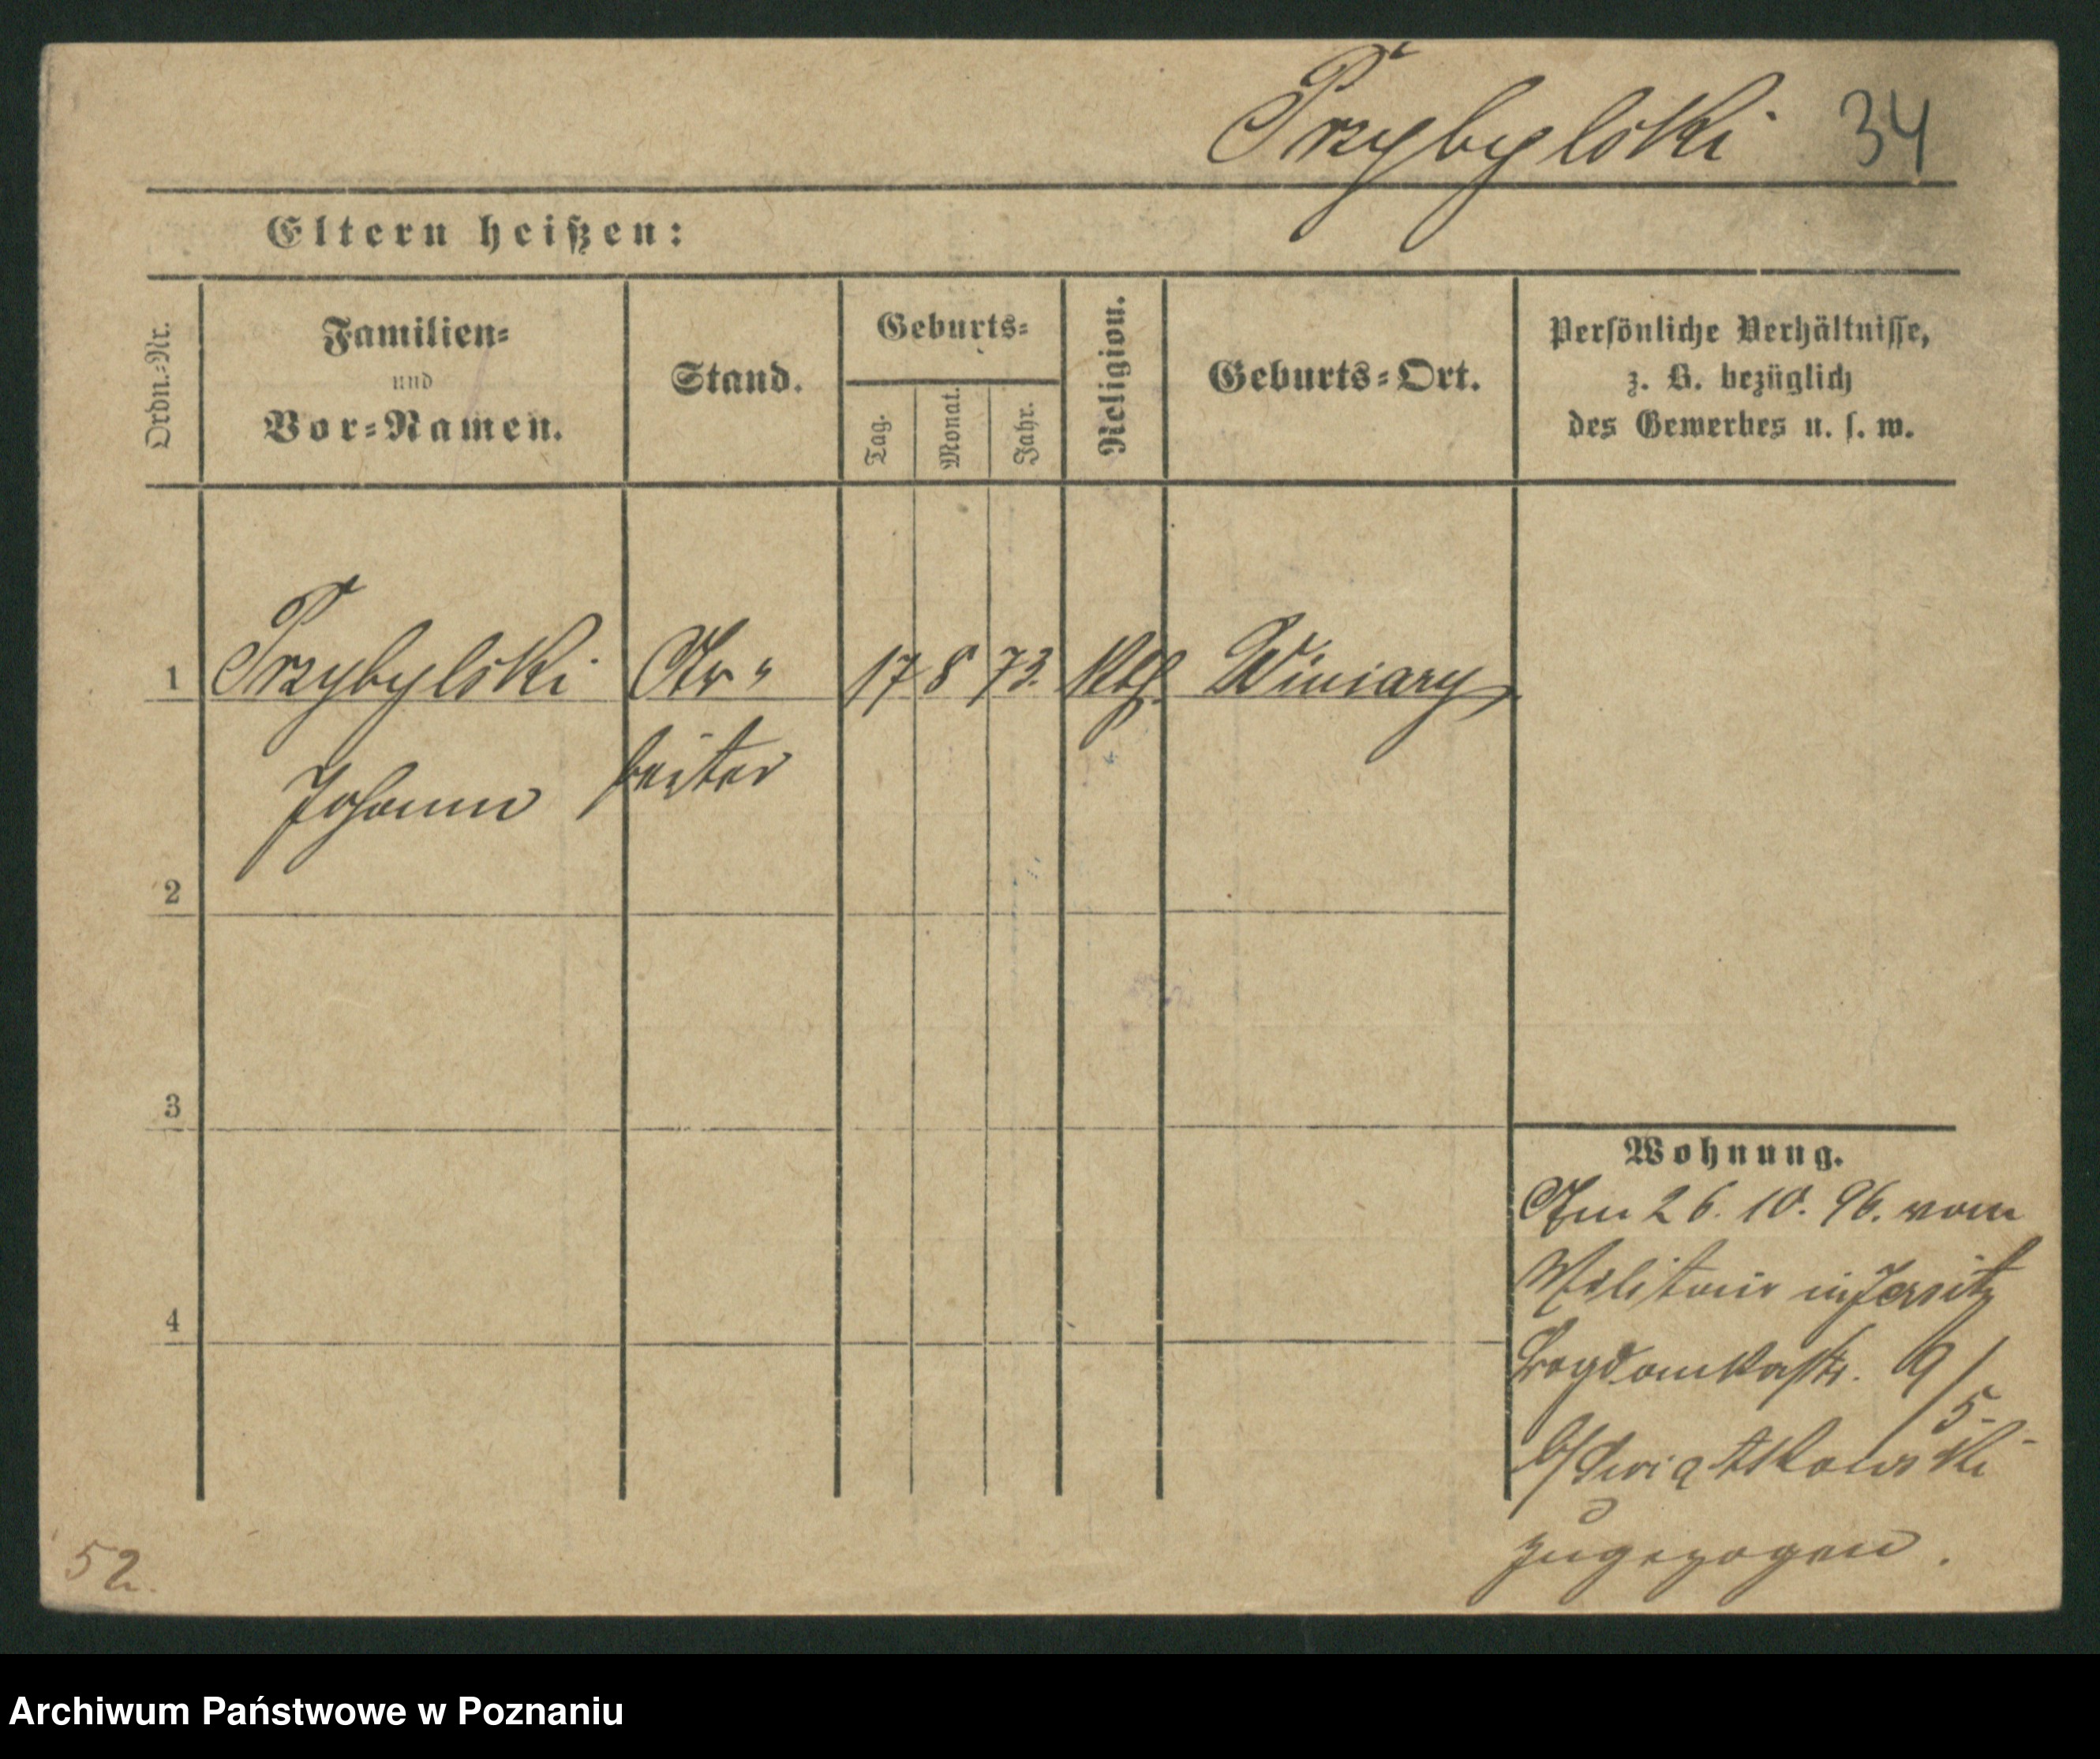 Przybylski 34
Eltern heißen:
Ordn.-Nr.
Familien-
und
Vor-Namen.
Stand.
Geburts-
Tag.
Monat.
Jahr.
Religion.
Geburts-Ort.
Persönliche Verhältnisse,
z. B. bezüglich
des Gewerbes u. s. w.
1 Przybylski Ar- 17 8 73. Kth. Winiary
Johann beiter
2
3
4
Wohnung.
Am 26. 10. 96. vom
Militair in Jersitz
Bogdankastr. 9/5.
b/ Swiątkowski
zugezogen.
52.
Archiwum Państwowe w Poznaniu